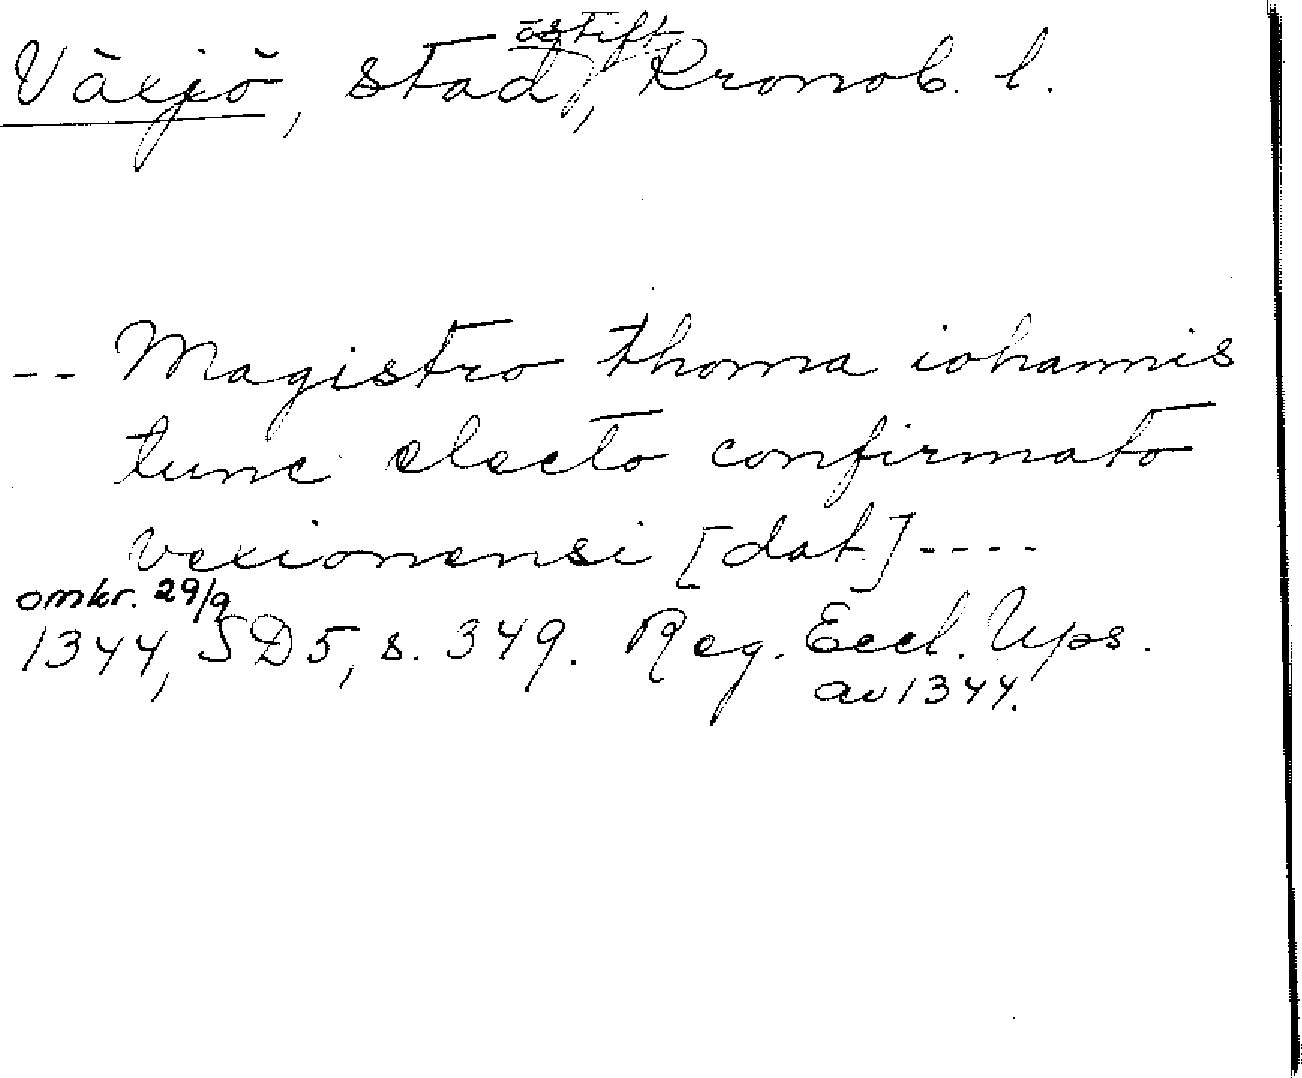 Växjö, stad, Kronob. l.
-- Magistro thoma iohannis
tunc electo confirmato
vexionensi [dat.] ----
omkr. 29/9
1344, SD 5, s. 349. Reg. Eccl. Ups.
av 1344.